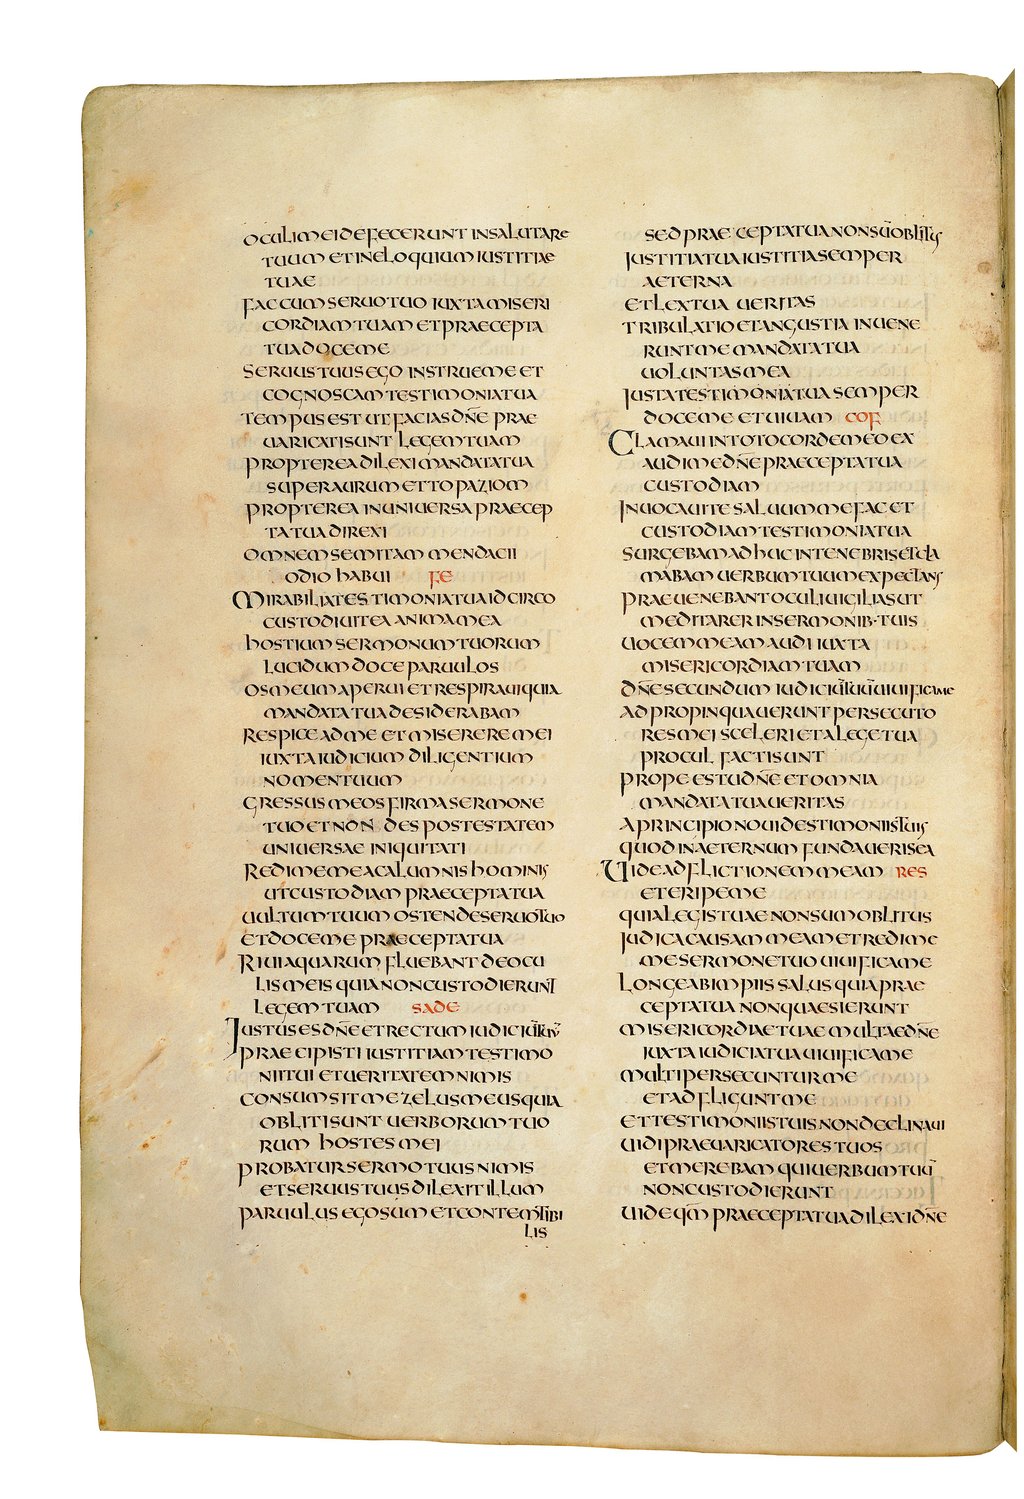 oculi mei defecerunt in salutare
tuum et in eloquium iustitiae
tuae
fac cum seruo tuo iuxta miseri
cordiam tuam et praecepta
tua doce me
seruus tuus ego instrue me et
cognoscam testimonia tua
tempus est ut facias dn̄e prae
uaricati sunt legem tuam
propterea dilexi mandata tua
super aurum et topaziom
propterea in uniuersa praecep
ta tua direxi
omnem semitam mendacii
odio habui fe
mirabilia testimonia tua idcirco
custodiuit ea anima mea
hostium sermonum tuorum
lucidum doce paruulos
os meum aperui et respiraui quia
mandata tua desiderabam
respice ad me et miserere mei
iuxta iudicium diligentium
nomen tuum
gressus meos firma sermone
tuo et non des postestatem
uniuersae iniquitati
redime me a calumnis hominis
ut custodiam praecepta tua
uultum tuum ostende seruo tuo
et doce me praecepta tua
riui aquarum fluebant de ocu
lis meis quia non custodierunt
legem tuam sade
iustus es dn̄e et rectum iudiciū tuū
praecipisti iustitiam testimo
nii tui et ueritatem nimis
consumsit me zelus meus quia
obliti sunt uerborum tuo
rum hostes mei
probatur sermo tuus nimis
et seruus tuus dilexit illum
paruulus ego sum et contemtibi
lis
sed praecepta tua non sū oblitus
iustitia tua iustitia semper
aeterna
et lex tua ueritas
tribulatio et angustia inuene
runt me mandata tua
uoluntas mea
iusta testimonia tua semper
doce me et uiuam cof
clamaui in toto corde meo ex
audi me dn̄e praecepta tua
custodiam
inuocaui te saluum me fac et
custodiam testimonia tua
surgebam adhuc in tenebris et cla
mabam uerbum tuum expectans
praeueniebant oculi uigilias ut
meditarer in sermonib· tuis
uocem meam audi iuxta
misericordiam tuam
dn̄e secundum iudiciū tuū uiuifica me
adpropinquauerunt persecuto
res mei sceleri et a lege tua
procul facti sunt
prope es tu dn̄e et omnia
mandata tua ueritas
a principio noui de stimoniis tuis
quod in aeternum fundaueris ea
uide adflictionem meam res
et eripe me
quia legis tuae non sum oblitus
iudica causam meam et redime
me sermone tuo uiuifica me
longe ab impiis salus quia prae
cepta tua non quaesierunt
misericordiae tuae multae dn̄e
iuxta iudicia tua uiuifica me
multi persecuntur me
et adfligunt me
et testimoniis tuis non declinaui
uidi praeuaricatores tuos
et merebam qui uerbum tuū
non custodierunt
uide qm̄ praecepta tua dilexi dn̄e